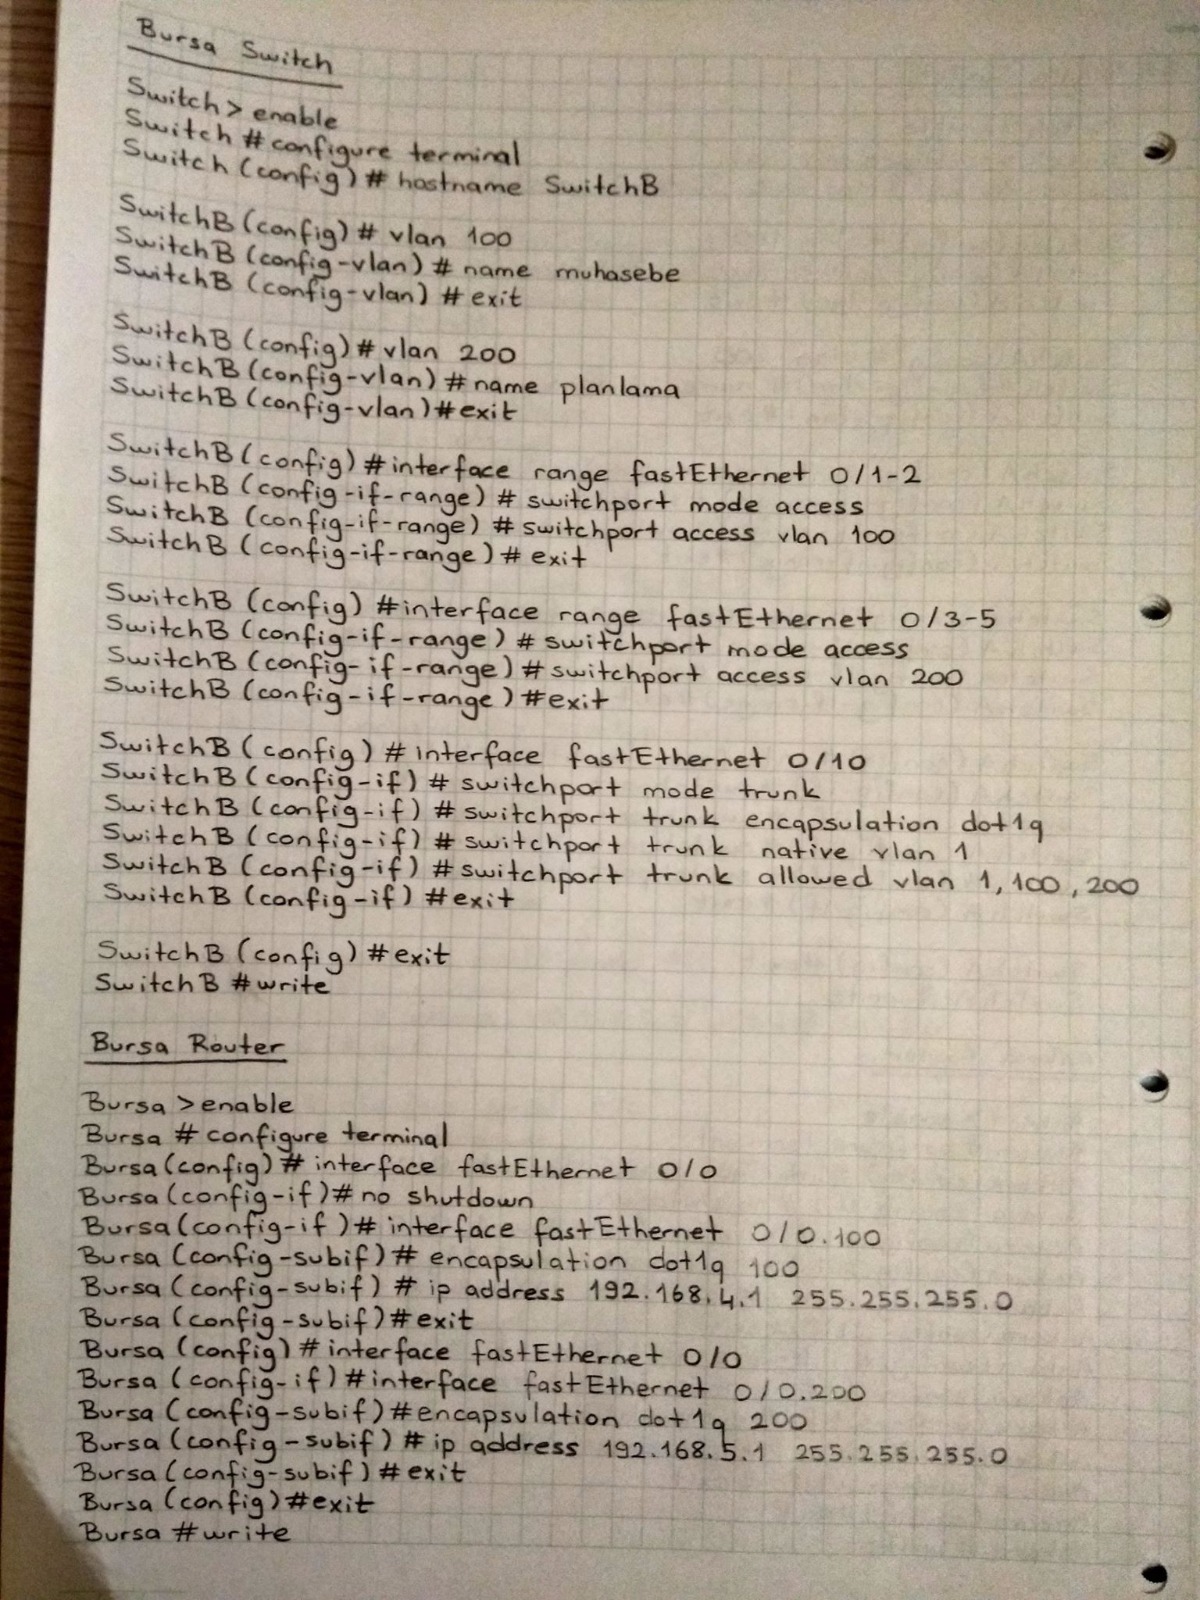 Bursa Switch
Switch> enable
Switch # configure terminal
Switch (config) # hostname SwitchB
SwitchB (config) # vlan 100
SwitchB (config-vlan) # name muhasebe
SwitchB (config-vlan) # exit
SwitchB (config) # vlan 200
SwitchB (config-vlan) # name planlama
SwitchB (config-vlan) # exit
SwitchB (config) # interface range fastEthernet 0/1-2
SwitchB (config-if-range) # switchport mode access
SwitchB (config-if-range) # switchport access vlan 100
SwitchB (config-if-range) # exit
SwitchB (config) # interface range fastEthernet 0/3-5
SwitchB (config-if-range) # switchport mode access
SwitchB (config-if-range) # switchport access vlan 200
SwitchB (config-if-range) # exit
SwitchB (config) # interface fastEthernet 0/10
SwitchB (config-if) # switchport mode trunk
SwitchB (config-if) # switchport trunk encapsulation dot1q
SwitchB (config-if) # switchport trunk native vlan 1
SwitchB (config-if) # switchport trunk allowed vlan 1,100,200
SwitchB (config-if) # exit
SwitchB (config) # exit
SwitchB # write
Bursa Router
Bursa > enable
Bursa # configure terminal
Bursa (config) # interface fastEthernet 0/0
Bursa (config-if) # no shutdown
Bursa (config-if) # interface fastEthernet 0/0.100
Bursa (config-subif) # encapsulation dot1q 100
Bursa (config-subif) # ip address 192.168.4.1 255.255.255.0
Bursa (config-subif) # exit
Bursa (config) # interface fastEthernet 0/0
Bursa (config-if) # interface fastEthernet 0/0.200
Bursa (config-subif) # encapsulation dot1q 200
Bursa (config-subif) # ip address 192.168.5.1 255.255.255.0
Bursa (config-subif) # exit
Bursa (config) # exit
Bursa # write